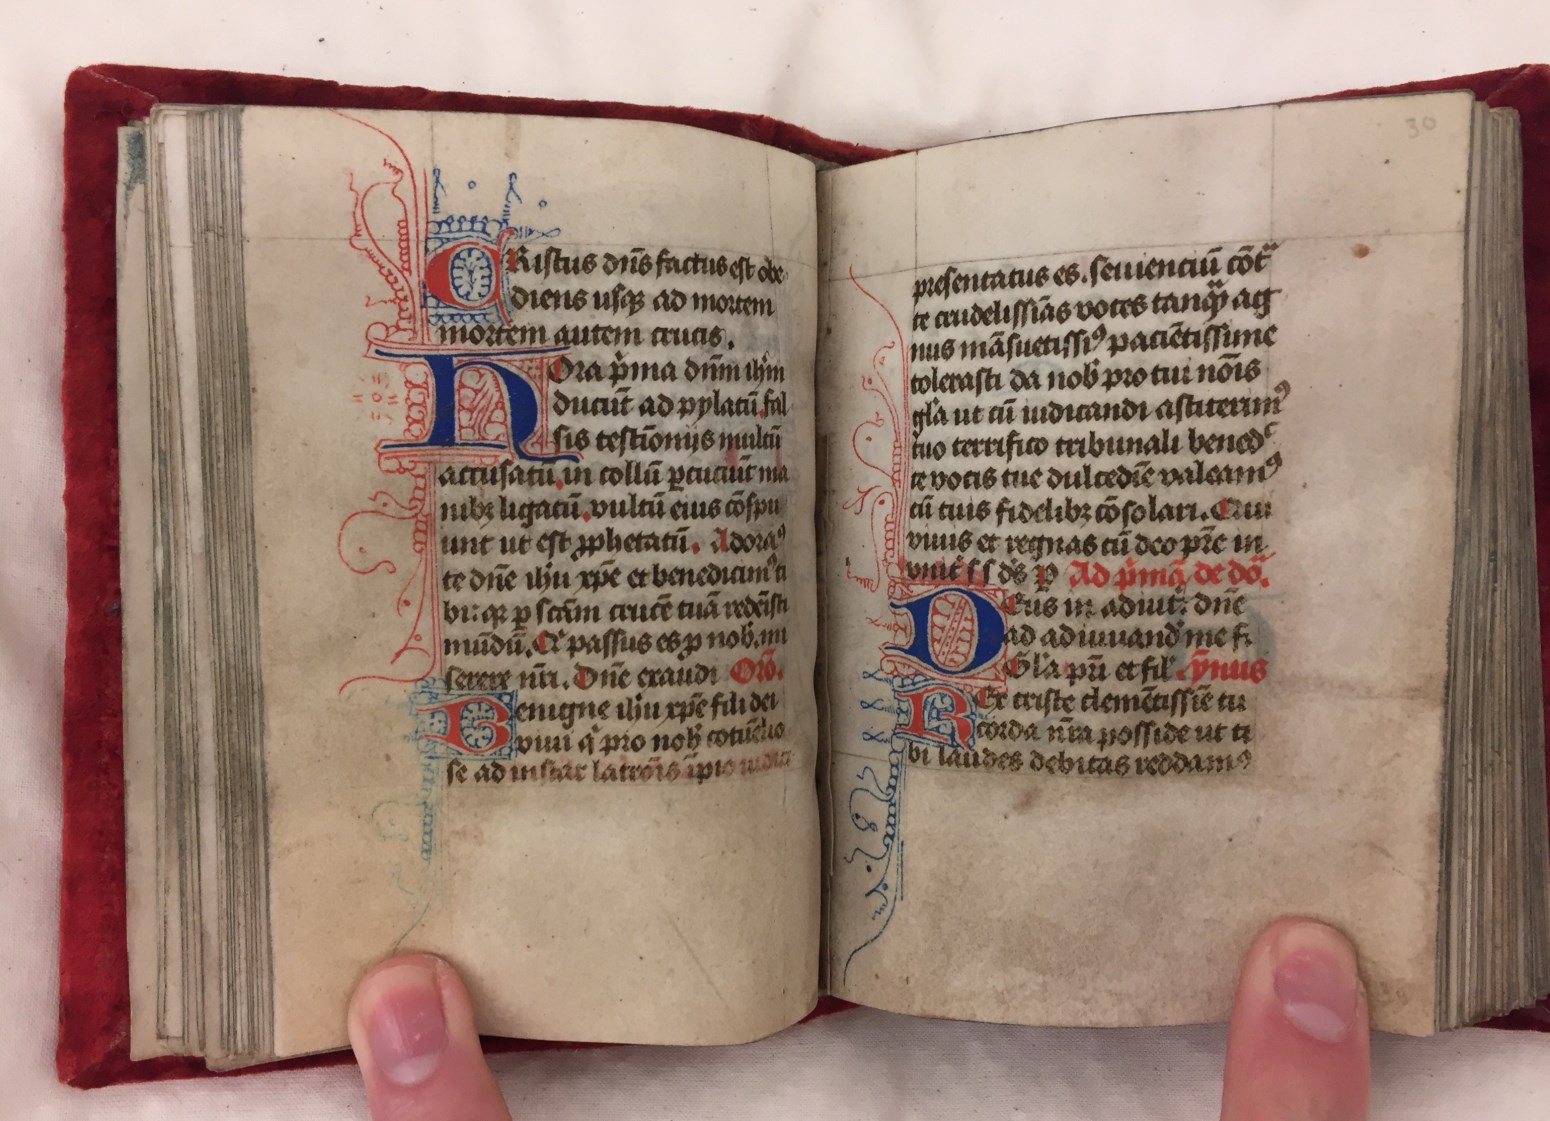 CRistus dñs factus est obe
diens usqꝫ ad mortem
mortem autem crucis.
hOra p̓ma dñm ih̓m
ducūt ad pylatū fal
sis testīonijs multū
accusatū in collū ꝑcuciūt ma
nibꝫ ligatū. vultū eius cōspu
unt ut est ꝓphetatū. Adoraꝰ
te dñe ih̓u xp̄e et benedicimꝰ ti
bi: qꝫ ꝑ scām crucē tuā redēisti
mūdū. Qͥ passus es ꝓ nob̓. mi
serere nr̄i. Dñe exaudi Orō.
Benigne ih̓u xp̄e fili dei
vivi qͥ pro nob̓
se ad instar latrōīs īpio iudici
30
presentatus es. sevienciū cōtͣ
te crudelissīas voces tanqͣ̄ ag
nus māsuetissiꝰ paciētissime
tolerasti da nob̓ pro tui nōīs
gl̓a ut cū iudicandi astiterimꝰ
tuo terrifico tribunali bened
te vocis tue dulcedīe valeamꝰ
cū tuis fidelibꝫ cōsolari. Qui
vivis et regnas cū deo pr̄e in
unit̓ s s ds̓ ꝑ Ad p̓mā de dō.
DEus in adiut̓: dñe
ad adiuvand̓ me f:
Gl̓a pr̄i et fil̓ ẏmus
REx criste clemētissīe tu
corda nr̄a posside ut ti
bi laudes debitas reddamꝰ